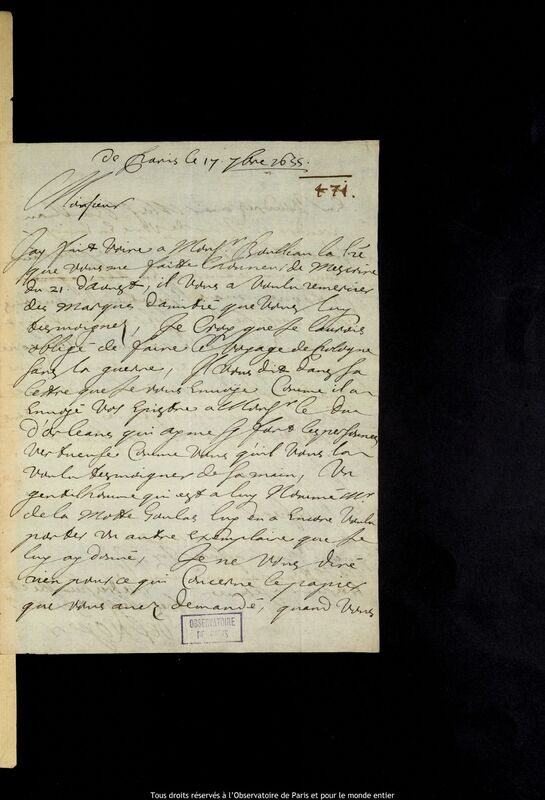 De Paris le 17. 7bre 1655.
471.
Monsieur
Jay fait voire a Monsr. Boulliau la lre
que vous me faitte l'honneur de mescrire
du 21. d'aoust, il vous a voulu remercier
des marques damitié que vous luy
tesmoignez, Je Croy que je l'aurois
obligé de faire le voyage de Pologne
sans la guerre, Il vous dit dans sa
lettre que je vous envoye Comme il a
Envoyé vos Epistre a Monsr. le Duc
D'orleans qui ayme sy fort les personnes
vertueuse Comme vous qu'il vous l'a
voulu tesmoigner de sa main, Un
gentilhomme qui est a luy Nommé Mr
de la Motte Goulas luy en a Encore voulu
porter un autre exemplaire que je
luy ay donné, Je ne vous diré
rien pour ce qui Concerne le papier
que vous avez demandé, quand vous
OBSERVATOIRE
DE PARIS
Tous droits réservés à l'Observatoire de Paris et pour le monde entier